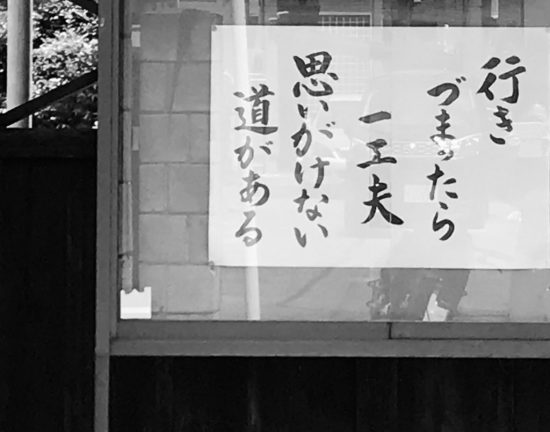 行き
づまったら
一工夫
思いがけない
道がある